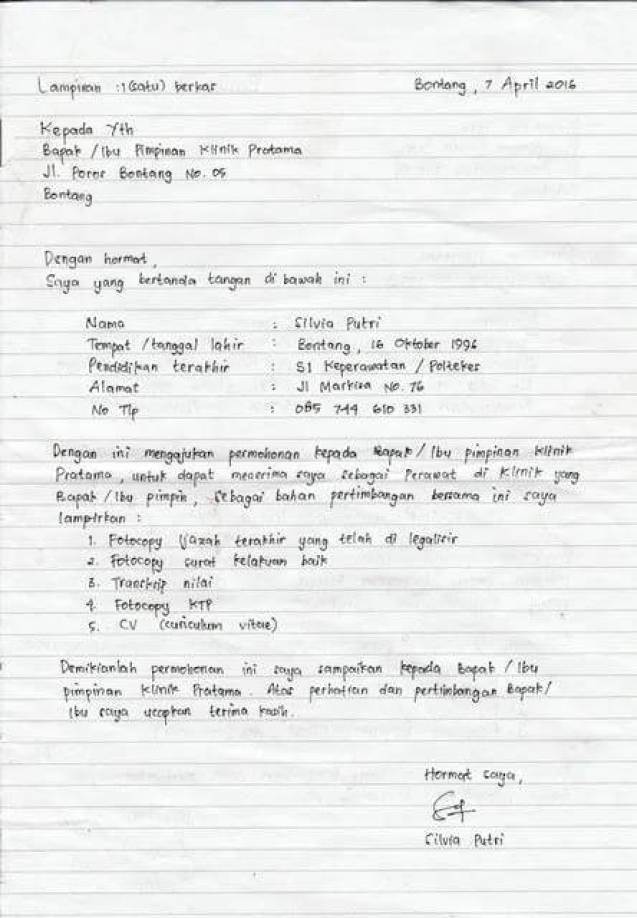 Lampiran : 1 (satu) berkas
Bontang, 7 April 2016
Kepada Yth
Bapak / Ibu Pimpinan Klinik Pratama
Jl. Poros Bontang No. 05
Bontang
Dengan hormat,
Saya yang bertanda tangan di bawah ini :
Nama : Silvia Putri
Tempat / tanggal lahir : Bontang, 16 Oktober 1996
Pendidikan terakhir : S1 Keperawatan / Poltekes
Alamat : Jl Markisa No. 76
No Tlp : 085 744 610 331
Dengan ini mengajukan permohonan kepada Bapak / Ibu pimpinan klinik
Pratama, untuk dapat menerima saya sebagai Perawat di Klinik yang
Bapak / Ibu pimpin, sebagai bahan pertimbangan bersama ini saya
lampirkan :
1. Fotocopy Ijazah terakhir yang telah di legalisir
2. Fotocopy surat kelakuan baik
3. Transkrip nilai
4. Fotocopy KTP
5. CV (curiculum vitae)
Demikianlah permohonan ini saya sampaikan kepada Bapak / Ibu
pimpinan Klinik Pratama. Atas perhatian dan pertimbangan Bapak /
Ibu saya ucapkan terima kasih.
Hormat saya,
Silvia Putri